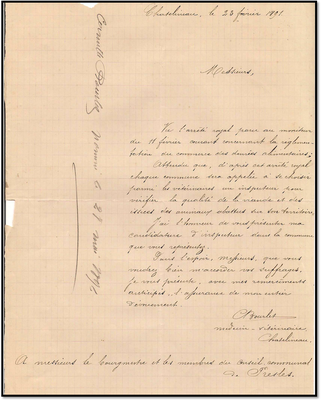 Chatelineau, le 23 février 1891
Messieurs,
Vu l'arrêté royal paru au moniteur
du 11 février courant concernant la réglemen-
tation du commerce des denrées alimentaires;
Attendu que, d'après cet arrêté royal
chaque commune sera appelée à se choisir
parmi les vétérinaires un inspecteur pour
vérifier la qualité de la viande et des
issues des animaux abattus sur son territoire,
J'ai l'honneur de vous présenter ma
candidature d'inspecteur dans la commune
que vous représentez.
Dans l'espoir, messieurs, que vous
voudrez bien m'accorder vos suffrages,
je vous présente, avec mes remerciements
anticipés, l'assurance de mon entier
dévouement.
médecin-vétérinaire
Chatelineau.
A messieurs le bourgmestre et les membres du conseil communal
de Presles.